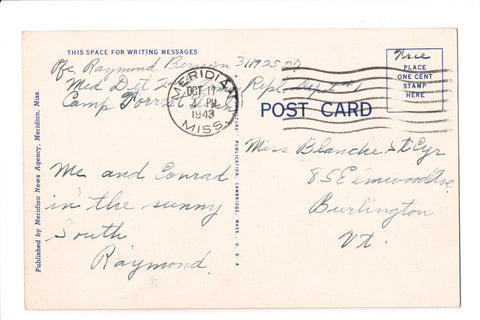 THIS SPACE FOR WRITING MESSAGES
Pfc. Raymond
Med Det 2
Camp Forrest
MERIDIAN
OCT 19
4 PM
1943
MISS.
Free
PLACE
ONE CENT
STAMP
HERE
POST CARD
Miss Blanche St Cyr
85 Elmwood Ave
Burlington
Vt.
Me and Conrad
in the sunny
South
Raymond
Published by Meridian News Agency, Meridian, Miss.
PUBLICATION, CAMBRIDGE, MASS., U. S. A.